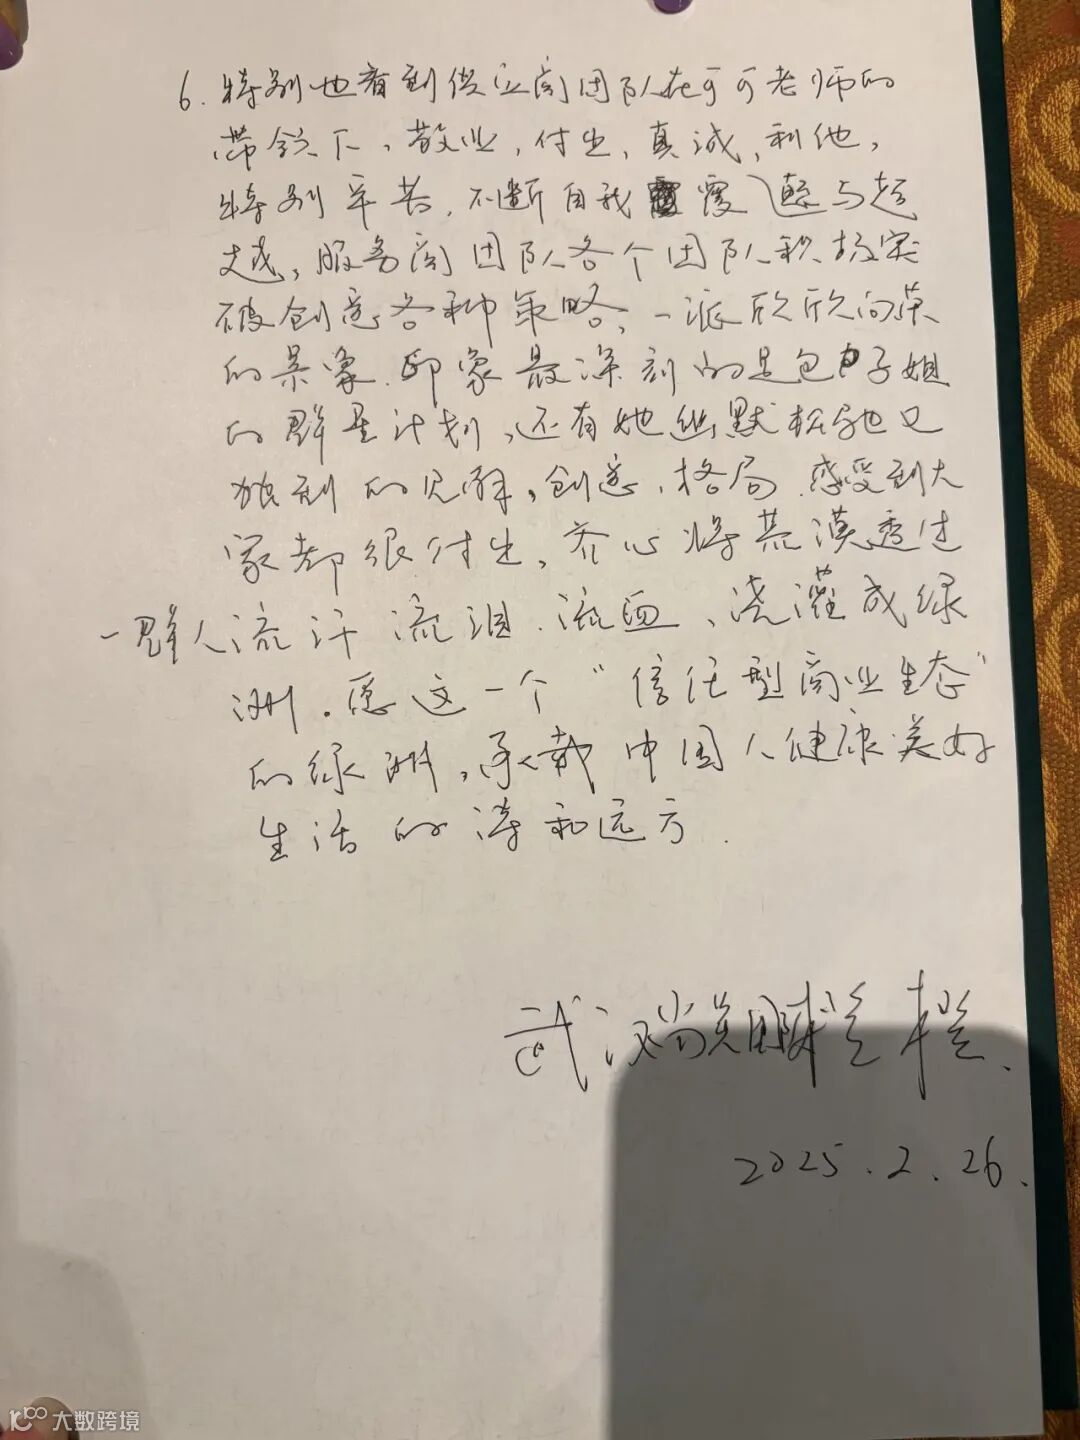 6. 特别也看到供应商团队在可可老师的
带领下，敬业，付出，真诚，利他，
特别辛苦，不断自我覆与超
越，服务商团队各个团队积极突
破创意各种策略，一派欣欣向荣
的景象.印象最深刻的是包子姐
的群星计划，还有她幽默松弛又
独到的见解，创意，格局.感受到大
家都很付出，齐心将荒漠透过
一群人流汗流泪.流血，浇灌成绿
洲.愿这一个“信任型商业生态”
的绿洲，承载中国人健康美好
生活的诗和远方.
武汉尚
2025.2.26.
大数跨境